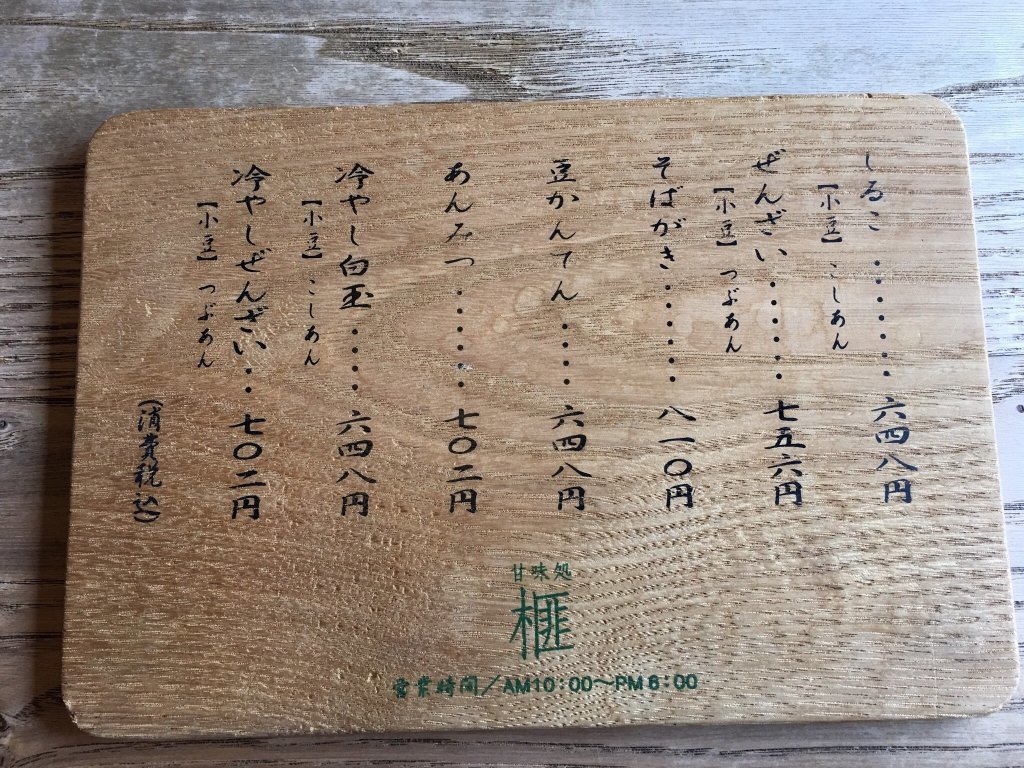 しるこ・・・・・・六四八円
【小豆】こしあん
ぜんざい・・・・・七五六円
【小豆】つぶあん
そばがき・・・・・八一〇円
豆かんてん・・・・六四八円
あんみつ・・・・・・七〇二円
冷やし白玉・・・・六四八円
【小豆】こしあん
冷やしぜんざい・・七〇二円
【小豆】つぶあん
(消費税込)
甘味処
榧
営業時間/AM10:00〜PM6:00